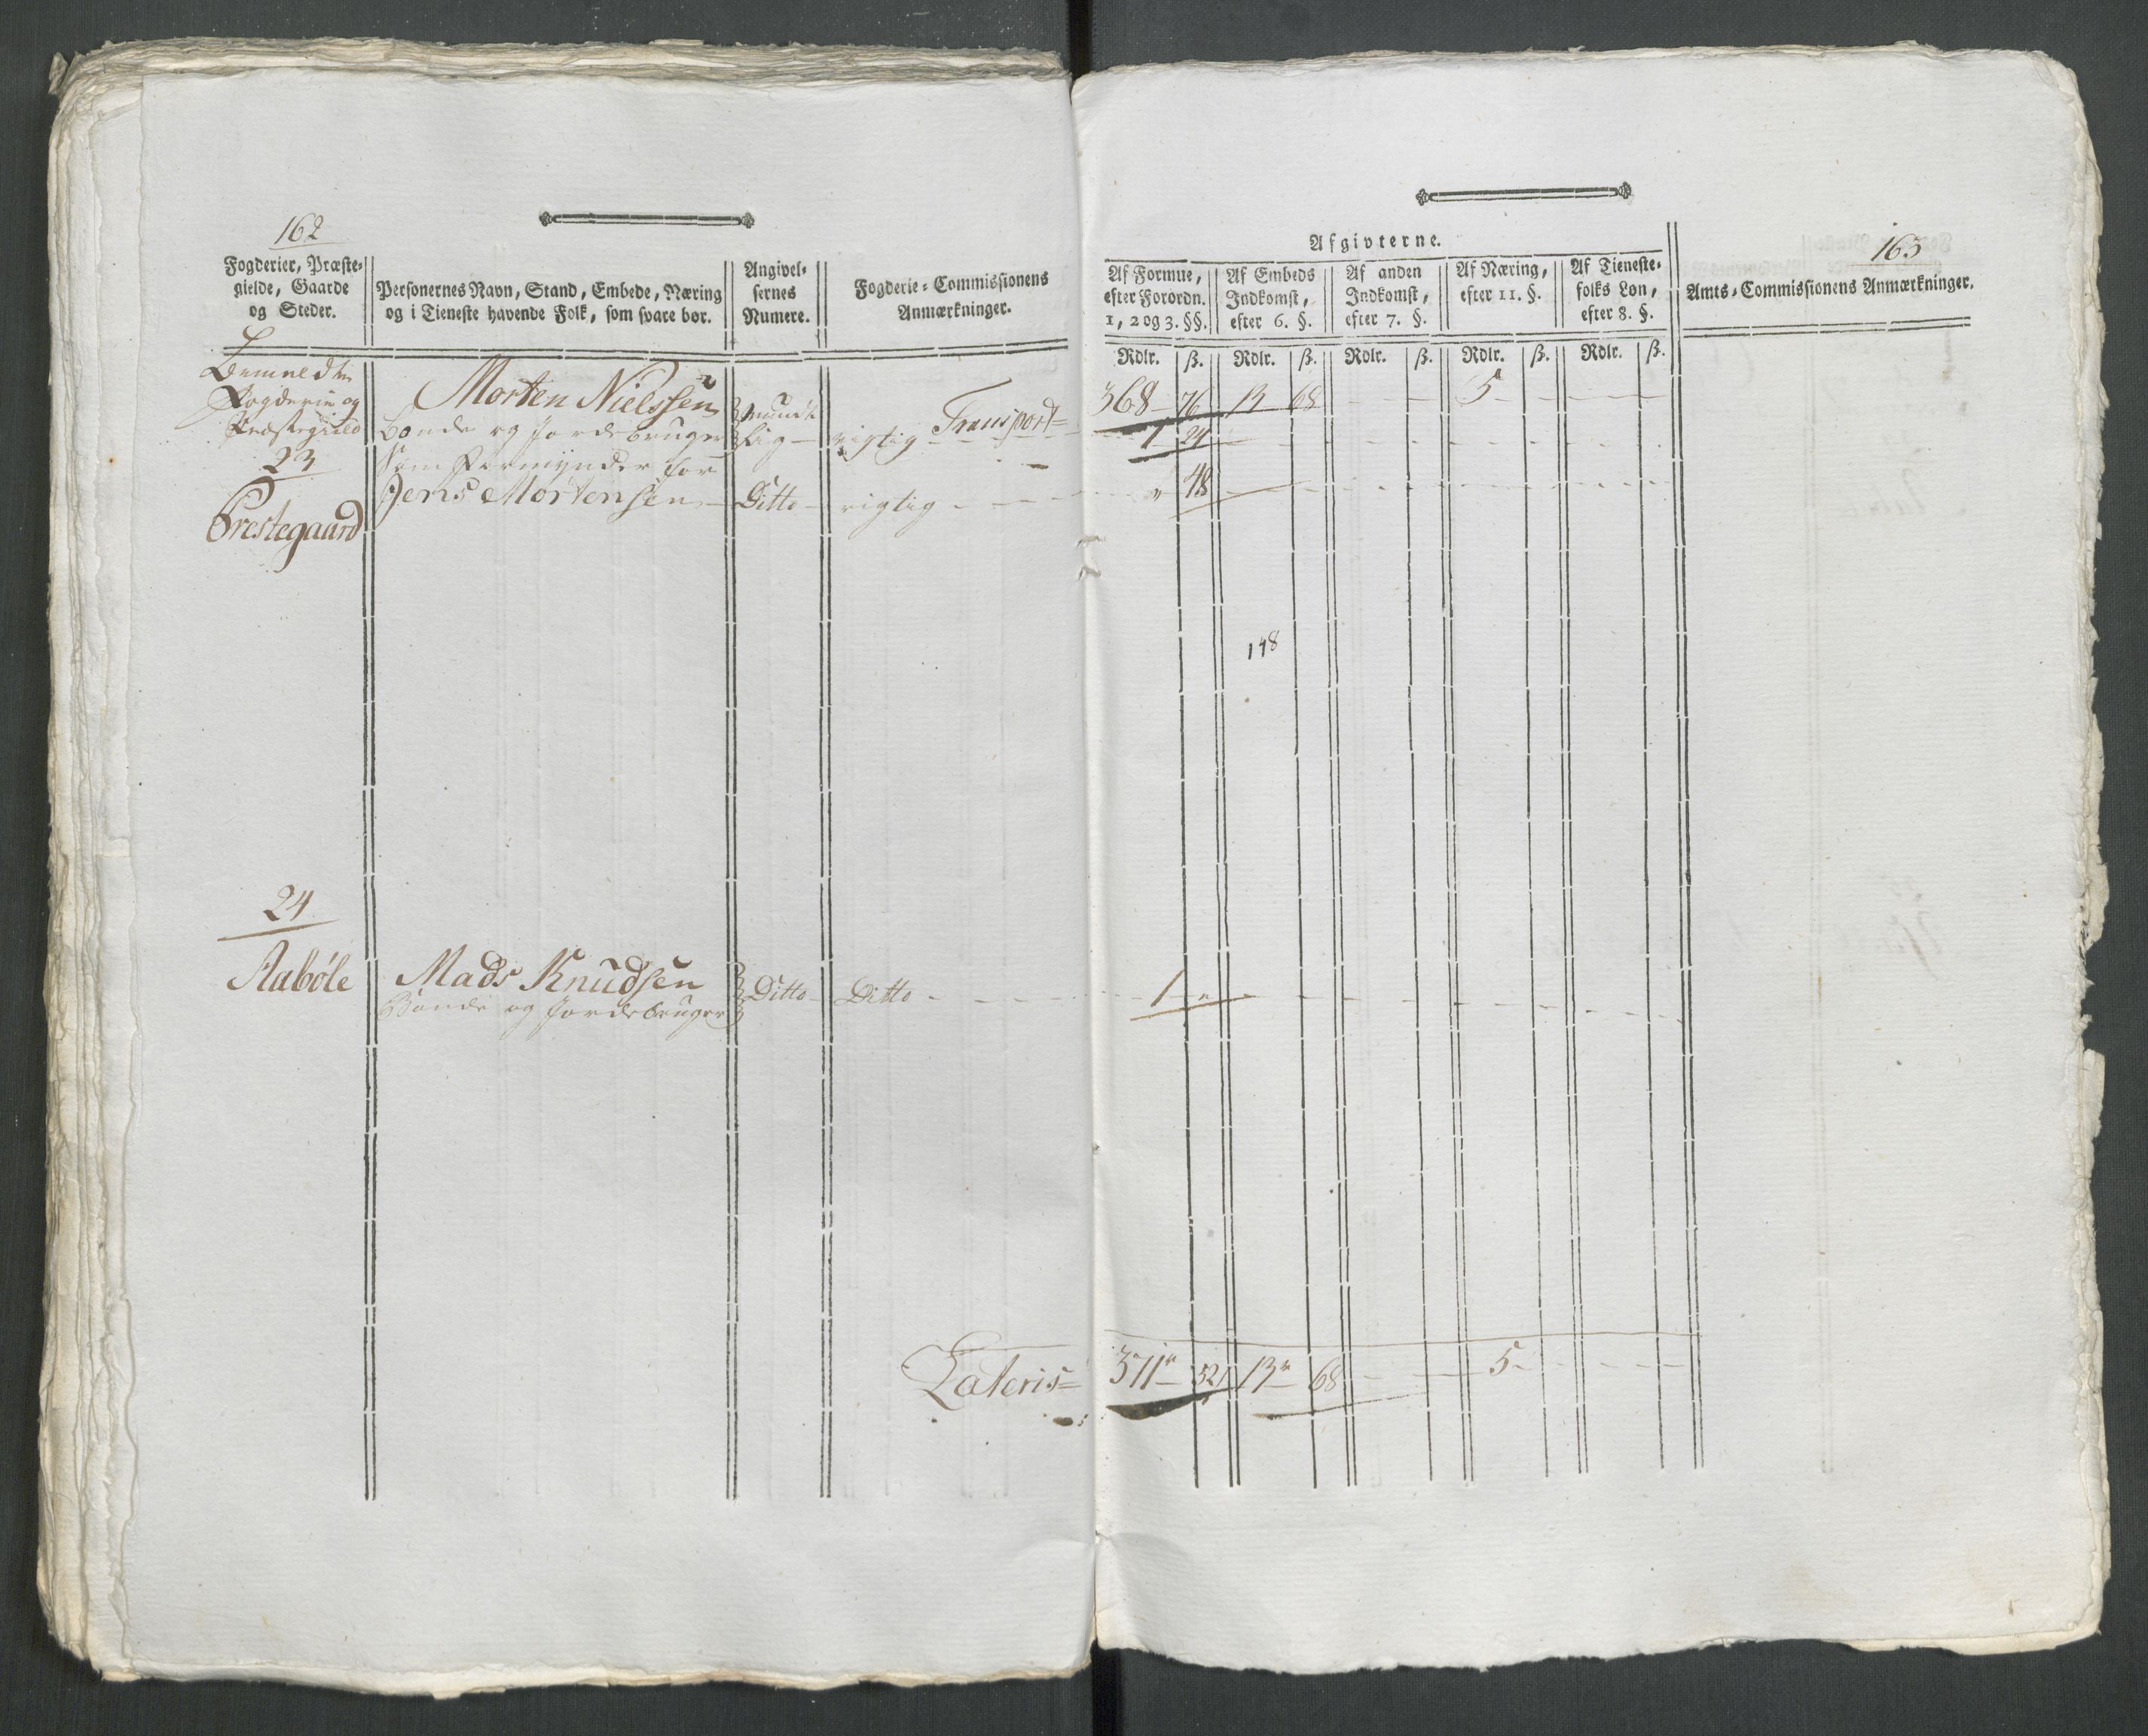 162
Fogderier, Præste-
gielde, Gaarde
og Steder.
Personernes Navn, Stand, Embede, Næring
og i Tieneste havende Folk, som svare bør.
Angivel-
sernes
Numere.
Fogderie-Commissionens
Anmærkninger.
Bemeldte
Fogderie og
Præstegield
23
Prestegaard
Morten Nielssen
Bonde og Jordebruger
som Formynder for
Jens Mortensen
mundt
lig
Ditto
Transport
rigtig
rigtig
24
Aabóle
Mads Knudsen
Bonde og Jordebruger
Ditto
Ditto
Lateris
163
Afgivterne.
Af Formue,
efter Forordn.
1, 2 og 3. §§.
Af Embeds
Indkomst,
efter 6. §.
Af anden
Indkomst,
efter 7. §.
Af Næring,
efter 11. §.
Af Tieneste-
folks Løn,
efter 8. §.
Amts-Commissionens Anmærkninger.
Rdlr. ß. Rdlr. ß. Rdlr. ß. Rdlr. ß. Rdlr. ß.
368 76 13 68 - - 5 - - -
1 24 - - - - - - - -
" 48 - - - - - - - -
148
1 " - - - - - - - -
371 52 13 68 - - 5 - - -